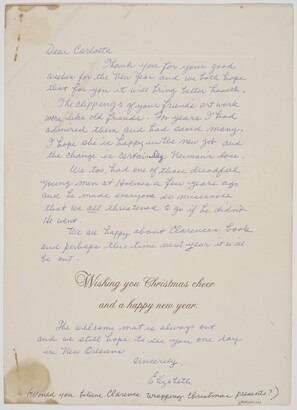 Dear Carlotta
Thank you for your good
wishes for the New Year and we both hope
that for you it will bring better health.
The clippings of your friends art work
were like old friends. For years I had
admired them and had saved many.
I hope she is happy in the new job and
the change is certainly Neiman's loss.
We too, had one of those dreadful
young men at Holmes a few years ago
and he made everyone so miserable
that we all threatened to go if he didn't.
He went.
We are happy about Clarence's book
and perhaps this time next year it will
be out.
Wishing you Christmas cheer
and a happy new year.
The welcome mat is always out
and we still hope to see you one day
in New Orleans
Sincerely
Elizabeth
(Would you believe Clarence wrapping Christmas presents?)